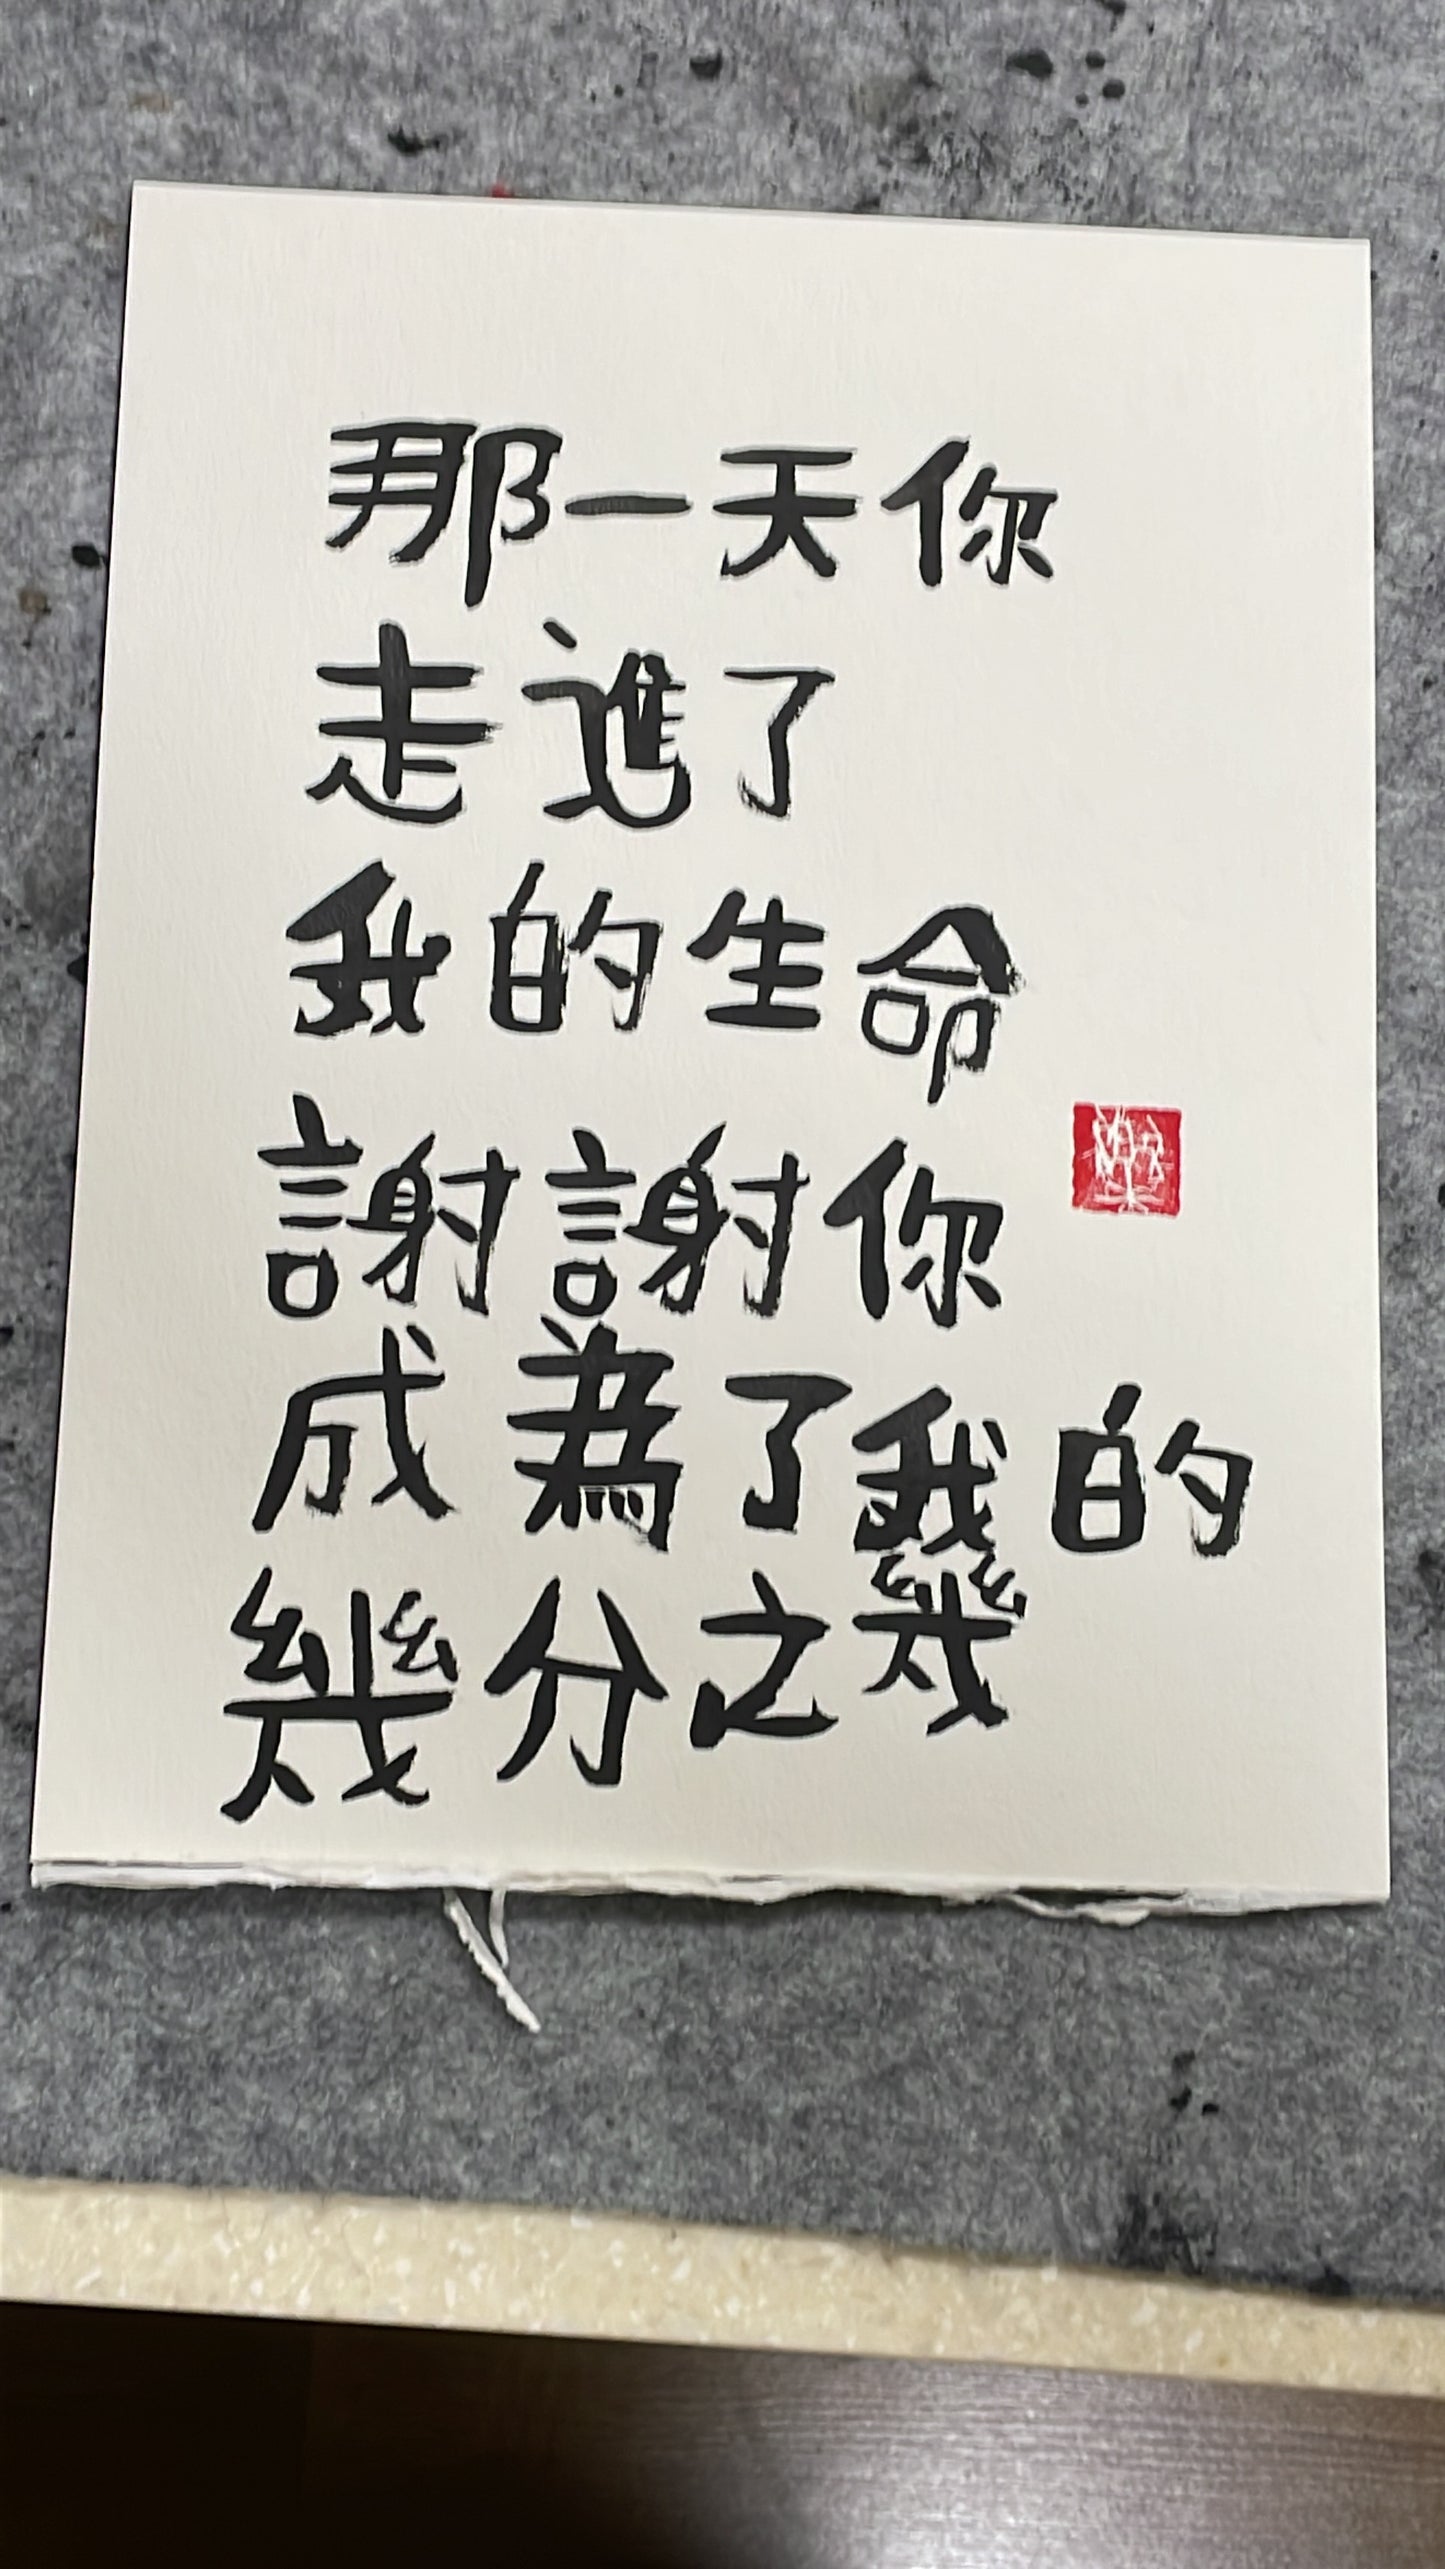 那一天你
走進了
我的生命
謝謝你
成為了我的
幾分之幾